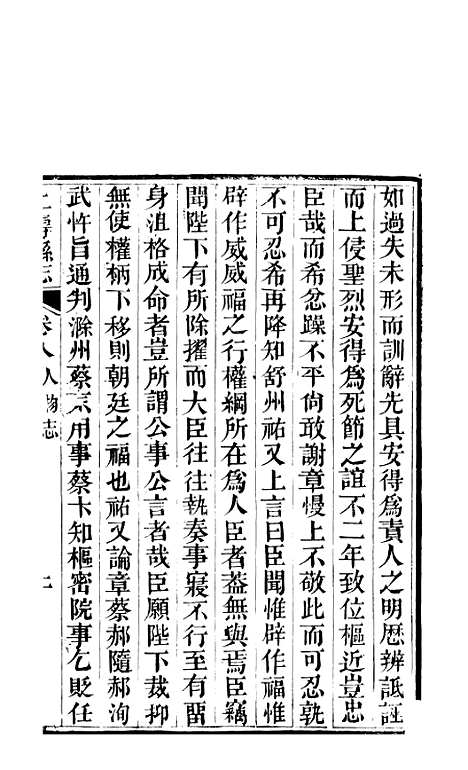 如過失未形而訓辭先具安得爲責人之明歷辨詆誣
而上侵聖烈安得爲死節之誼不二年致位樞近豈忠
臣哉而希忿躁不平尙敢謝章慢上不敬此而可忍孰
不可忍希再降知舒州祐又上言曰臣聞惟辟作福惟
辟作威威福之行權綱所在爲人臣者葢無與焉臣竊
聞陛下有所除擢而大臣往往執奏事寢不行至有留
身沮格成命者豈所謂公事公言者哉臣願陛下裁抑
無使權柄下移則朝廷之福也祐又論章蔡郝隨郝洵
武忤旨通判滁州蔡京用事蔡卞知樞密院事乞貶任
縣志
卷八 人物志